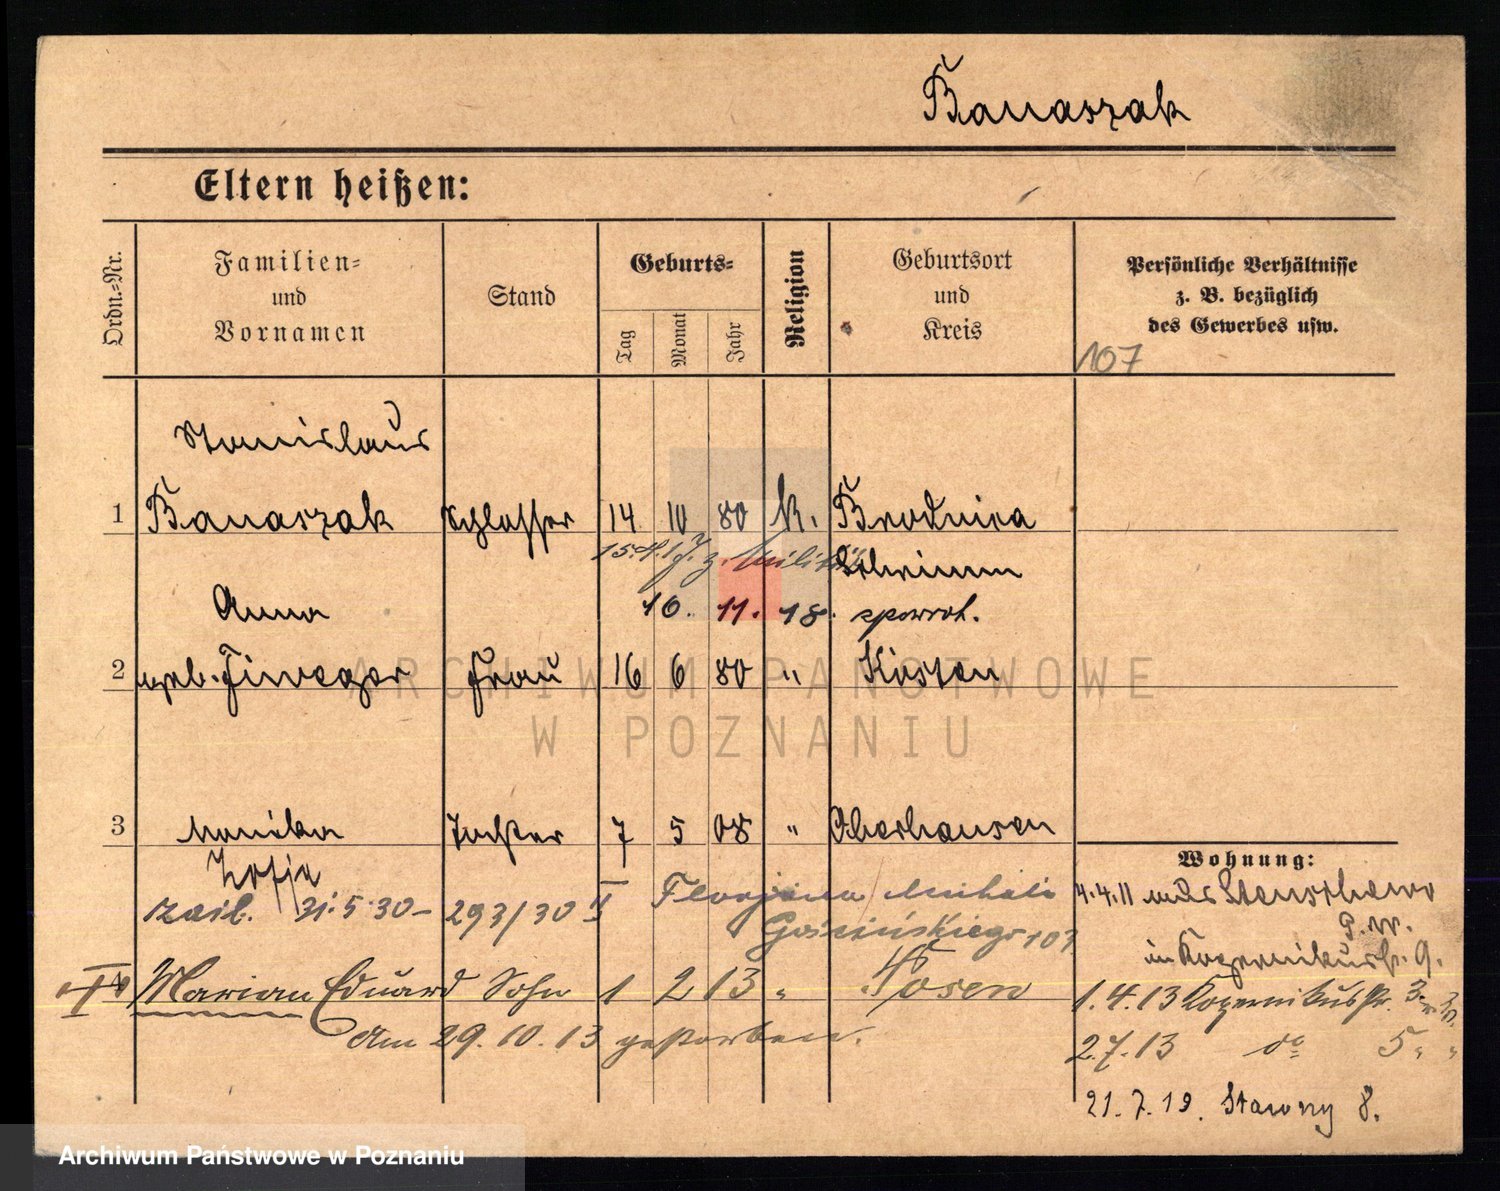 Banaszak
Eltern heißen:
Ordn.-Nr.
Familien-
und
Vornamen
Stand
Geburts-
Tag
Monat
Jahr
Religion
Geburtsort
und
Kreis
Persönliche Verhältnisse
z. B. bezüglich
des Gewerbes usw.
107
Stanislaus
1 Banaszak Schlosser 14 10 80 k. Brodnica
15. z. Militär Schrimm
Anna 10. 11. 18. spowrot.
2 geb. Fiweger Frau 16 6 80 " Kosten
ARCHIWUM PAŃSTWOWE
W POZNANIU
3 Monika Tochter 7 5 08 " Oberhausen
Zofja
Wohnung:
31.5.30 - 293/30 II Florjana
4.4.11 aus
103
G. W.
in Kopernikusstr. 9.
4 Marian Eduard Sohn 1 2 13 " Posen
1.4.13 Kopernikusstr. 3
Am 29.10.13 gestorben.
2.7.13 do 5 " "
21.7.19. Stawny 8.
Archiwum Państwowe w Poznaniu